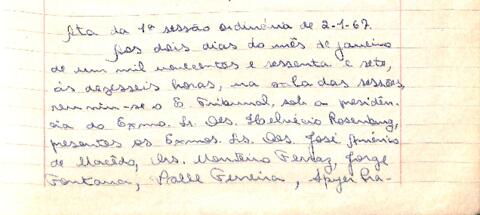 Ata da 1ª sessão ordinária de 2-1-67.
Aos dois dias do mês de janeiro
de um mil novecentos e sessenta e sete,
às dezesseis horas, na sala das sessões,
reuniu-se o E. Tribunal, sob a presidên-
cia do Exmo. Sr. Des. Helvécio Rosenburg,
presentes os Exmos. Srs. Des. José Américo
de Macêdo, Drs. Monteiro Ferraz, Jorge
Fontana, Valle Ferreira,